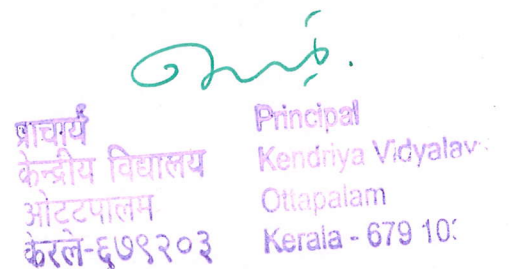 प्राचार्य
केन्द्रीय विद्यालय
ओट्टपालम
केरल-६७९२०३
Principal
Kendriya Vidyalay
Ottapalam
Kerala - 679 10